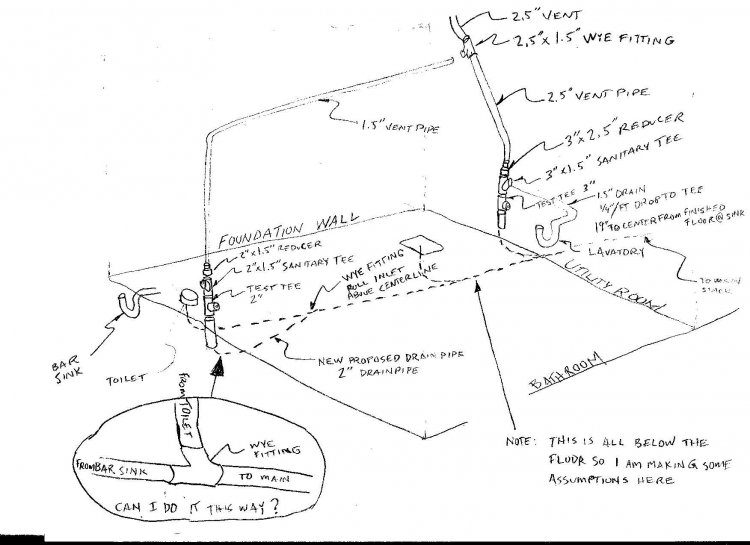 2.5" VENT
2.5" x 1.5" WYE FITTING
2.5" VENT PIPE
1.5" VENT PIPE
3" x 2.5" REDUCER
3" x 1.5" SANITARY TEE
TEST TEE 3"
1.5" DRAIN
1/4"/FT DROP TO TEE
19" TO CENTER FROM FINISHED
FLOOR @ SINK
LAVATORY
TO MAIN
STACK
UTILITY ROOM
FOUNDATION WALL
2" x 1.5" REDUCER
2" x 1.5" SANITARY TEE
TEST TEE
2"
WYE FITTING
ROLL INLET
ABOVE CENTERLINE
BAR
SINK
TOILET
NEW PROPOSED DRAIN PIPE
2" DRAINPIPE
BATHROOM
FROM TOILET
WYE
FITTING
FROM BAR SINK
TO MAIN
CAN I DO IT THIS WAY?
NOTE: THIS IS ALL BELOW THE
FLOOR SO I AM MAKING SOME
ASSUMPTIONS HERE